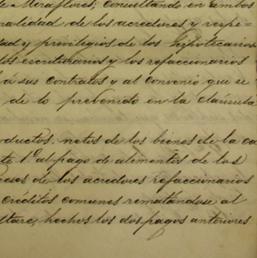 de Miraflores, consultando en ambos
ralidad de los acredores y respe-
dad y privilegios de los hipotecarios
les escriturarios y los refaccionarios
a sus contratos y al convenio que se
de lo prevenido en la cláusula
oductos, netos de los bienes de la ca
te 1º al pago de alimentos de las
eses de los acredores refaccionarios
créditos comunes rematándose al
hechos los dos pagos anteriores